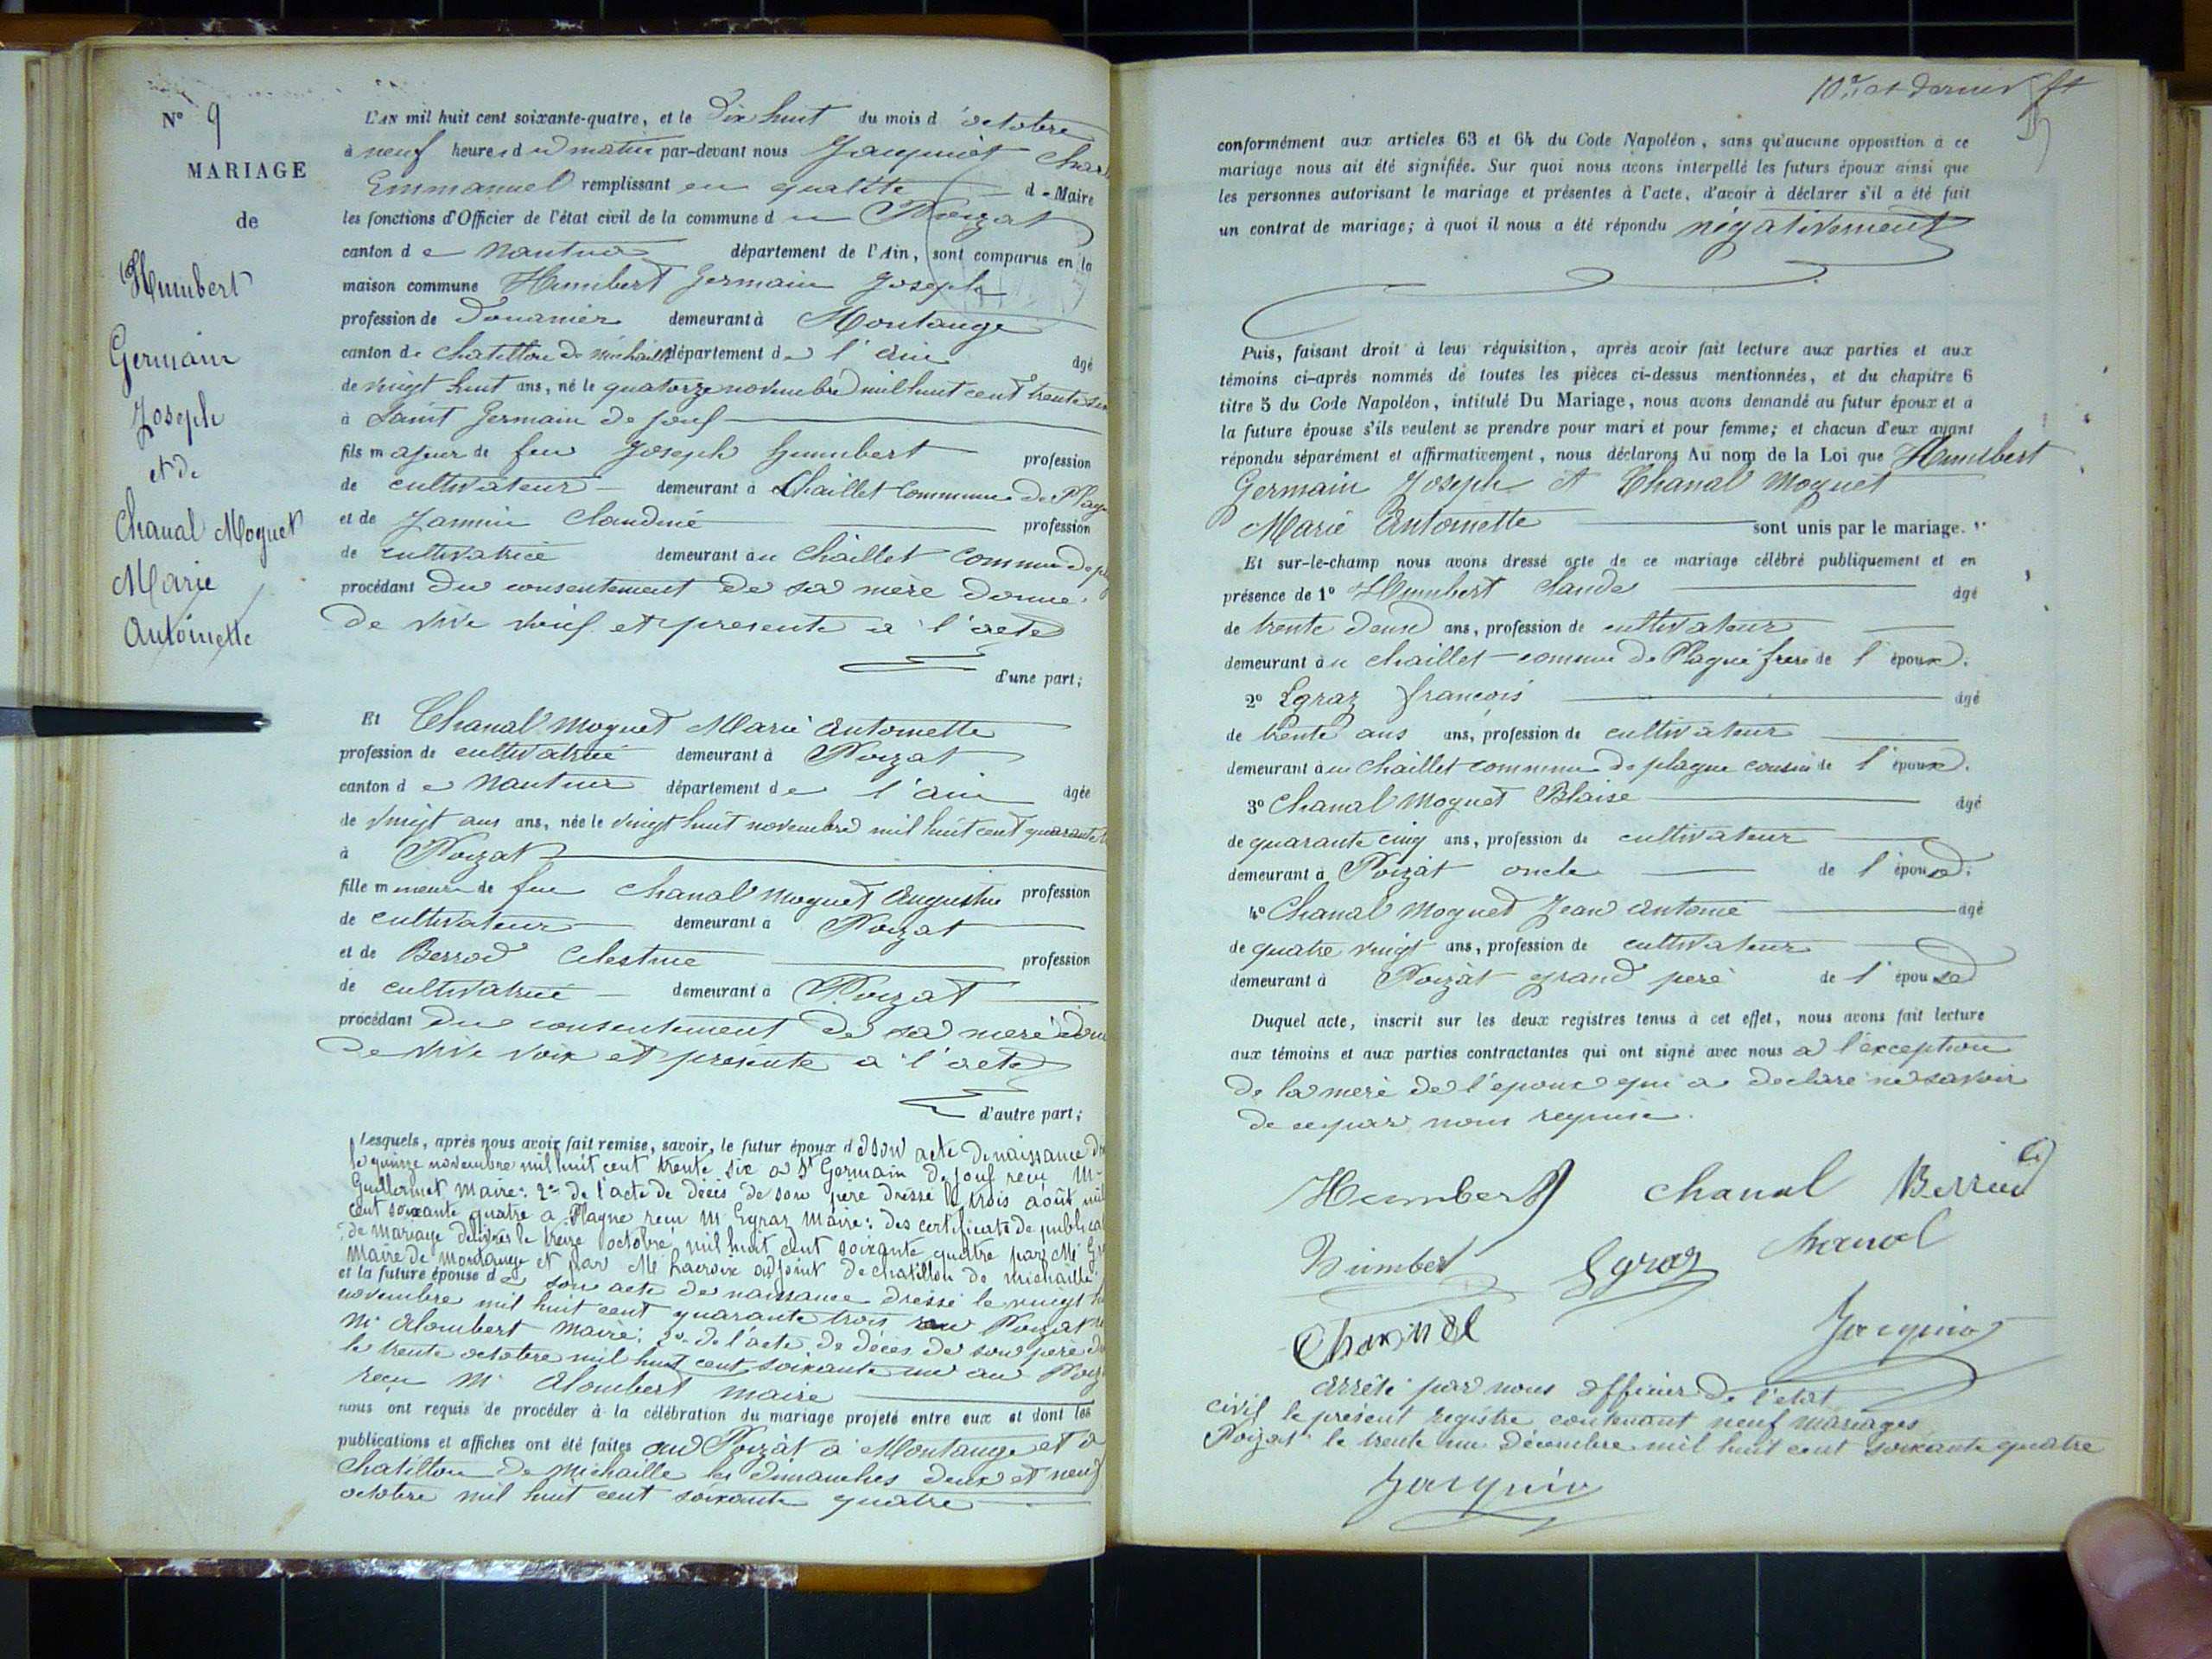 N° 9
MARIAGE
de
Humbert
Germain
Joseph
et de
Chanal Moguet
Marie
Antoinette
L'AN mil huit cent soixante-quatre, et le Dix huit du mois d'octobre
à neuf heures du matin par-devant nous Jacquiot
Emmanuel remplissant en qualité de Maire
les fonctions d'Officier de l'état civil de la commune du Poizat
canton de Nantua département de l'Ain, sont comparus en la
maison commune Humbert Germain Joseph
profession de Douanier demeurant à Montange
canton de Chatillon de Michaille département de l'ain âgé
de vingt huit ans, né le quatorze novembre mil huit cent trente six
à Saint Germain de Joux
fils majeur de feu Joseph Humbert profession
de cultivateur demeurant à Chaillet Commune de
et de Claudine profession
de cultivatrice demeurant au Chaillet commune de
procédant du consentement de sa mère donné
de vive voix et presente a l'acte
d'une part;
Et Chanal Moguet Marie Antoinette
profession de cultivatrice demeurant à Poizat
canton de Nantua département de l'ain âgée
de vingt ans ans, née le vingt huit novembre mil huit cent quarante
à Poizat
fille mineure de feu Chanal Moguet Augustin profession
de cultivateur demeurant à Poizat
et de Berrod Celestine profession
de cultivatrice demeurant à Poizat
procédant du consentement de sa mere
de vive voix et présente a l'acte
d'autre part;
Lesquels, après nous avoir fait remise, savoir, le futur époux de son acte de naissance
le quinze novembre mil huit cent trente six a St Germain de Joux reçu Mr
Guillermet Maire: 2° de l'acte de décès de son père dressé le trois août mil
cent soixante quatre a Plagne reçu Mr Egraz Maire: des certificats de
de mariage delivrés le treize octobre mil huit cent soixante quatre par Mr
Maire de montange et par Mr Lacroix adjoint de chatillon de michaille
et la future épouse de son acte de naissance dressé le vingt
novembre mil huit cent quarante trois au Poizat
Mr Alombert maire; 2° de l'acte de décès de son père
le trente octobre mil huit cent soixante un au
reçu Mr Alombert maire
nous ont requis de procéder à la célébration du mariage projeté entre eux et dont les
publications et affiches ont été faites au Poizat a Montange et a
Chatillon de Michaille les dimanches deux et neuf
octobre mil huit cent soixante quatre
10e et dernier ft
conformément aux articles 63 et 64 du Code Napoléon, sans qu'aucune opposition à ce
mariage nous ait été signifiée. Sur quoi nous avons interpellé les futurs époux ainsi que
les personnes autorisant le mariage et présentes à l'acte, d'avoir à déclarer s'il a été fait
un contrat de mariage; à quoi il nous a été répondu négativement
Puis, faisant droit à leur réquisition, après avoir fait lecture aux parties et aux
témoins ci-après nommés de toutes les pièces ci-dessus mentionnées, et du chapitre 6
titre 5 du Code Napoléon, intitulé Du Mariage, nous avons demandé au futur époux et à
la future épouse s'ils veulent se prendre pour mari et pour femme; et chacun d'eux ayant
répondu séparément et affirmativement, nous déclarons Au nom de la Loi que Humbert
Germain Joseph et Chanal Moguet
Marie Antoinette sont unis par le mariage.
Et sur-le-champ nous avons dressé acte de ce mariage célébré publiquement et en
présence de 1° Humbert Claude âgé
de trente deux ans, profession de cultivateur
demeurant au chaillet commune de Plagne frere de l'époux.
2° Egraz françois âgé
de trente ans ans, profession de cultivateur
demeurant au Chaillet commune de plagne cousin de l'époux.
3° Chanal Moguet Blaise âgé
de quarante cinq ans, profession de cultivateur
demeurant à Poizat oncle de l'épouse.
4° Chanal Moguet Jean Antoine âgé
de quatre vingt ans, profession de cultivateur
demeurant à Poizat grand pere de l'épouse
Duquel acte, inscrit sur les deux registres tenus à cet effet, nous avons fait lecture
aux témoins et aux parties contractantes qui ont signé avec nous a l'exception
de la mere de l'epoux qui a declaré ne savoir
de ce par nous requise.
Humbert chanal Berrod
Humbert Egraz Chanal
Chanal Jacquiot
Arrêté par nous officier de l'état
civil le présent registre contenant neuf mariages
Poizat le trente un décembre mil huit cent soixante quatre
Jacquiot